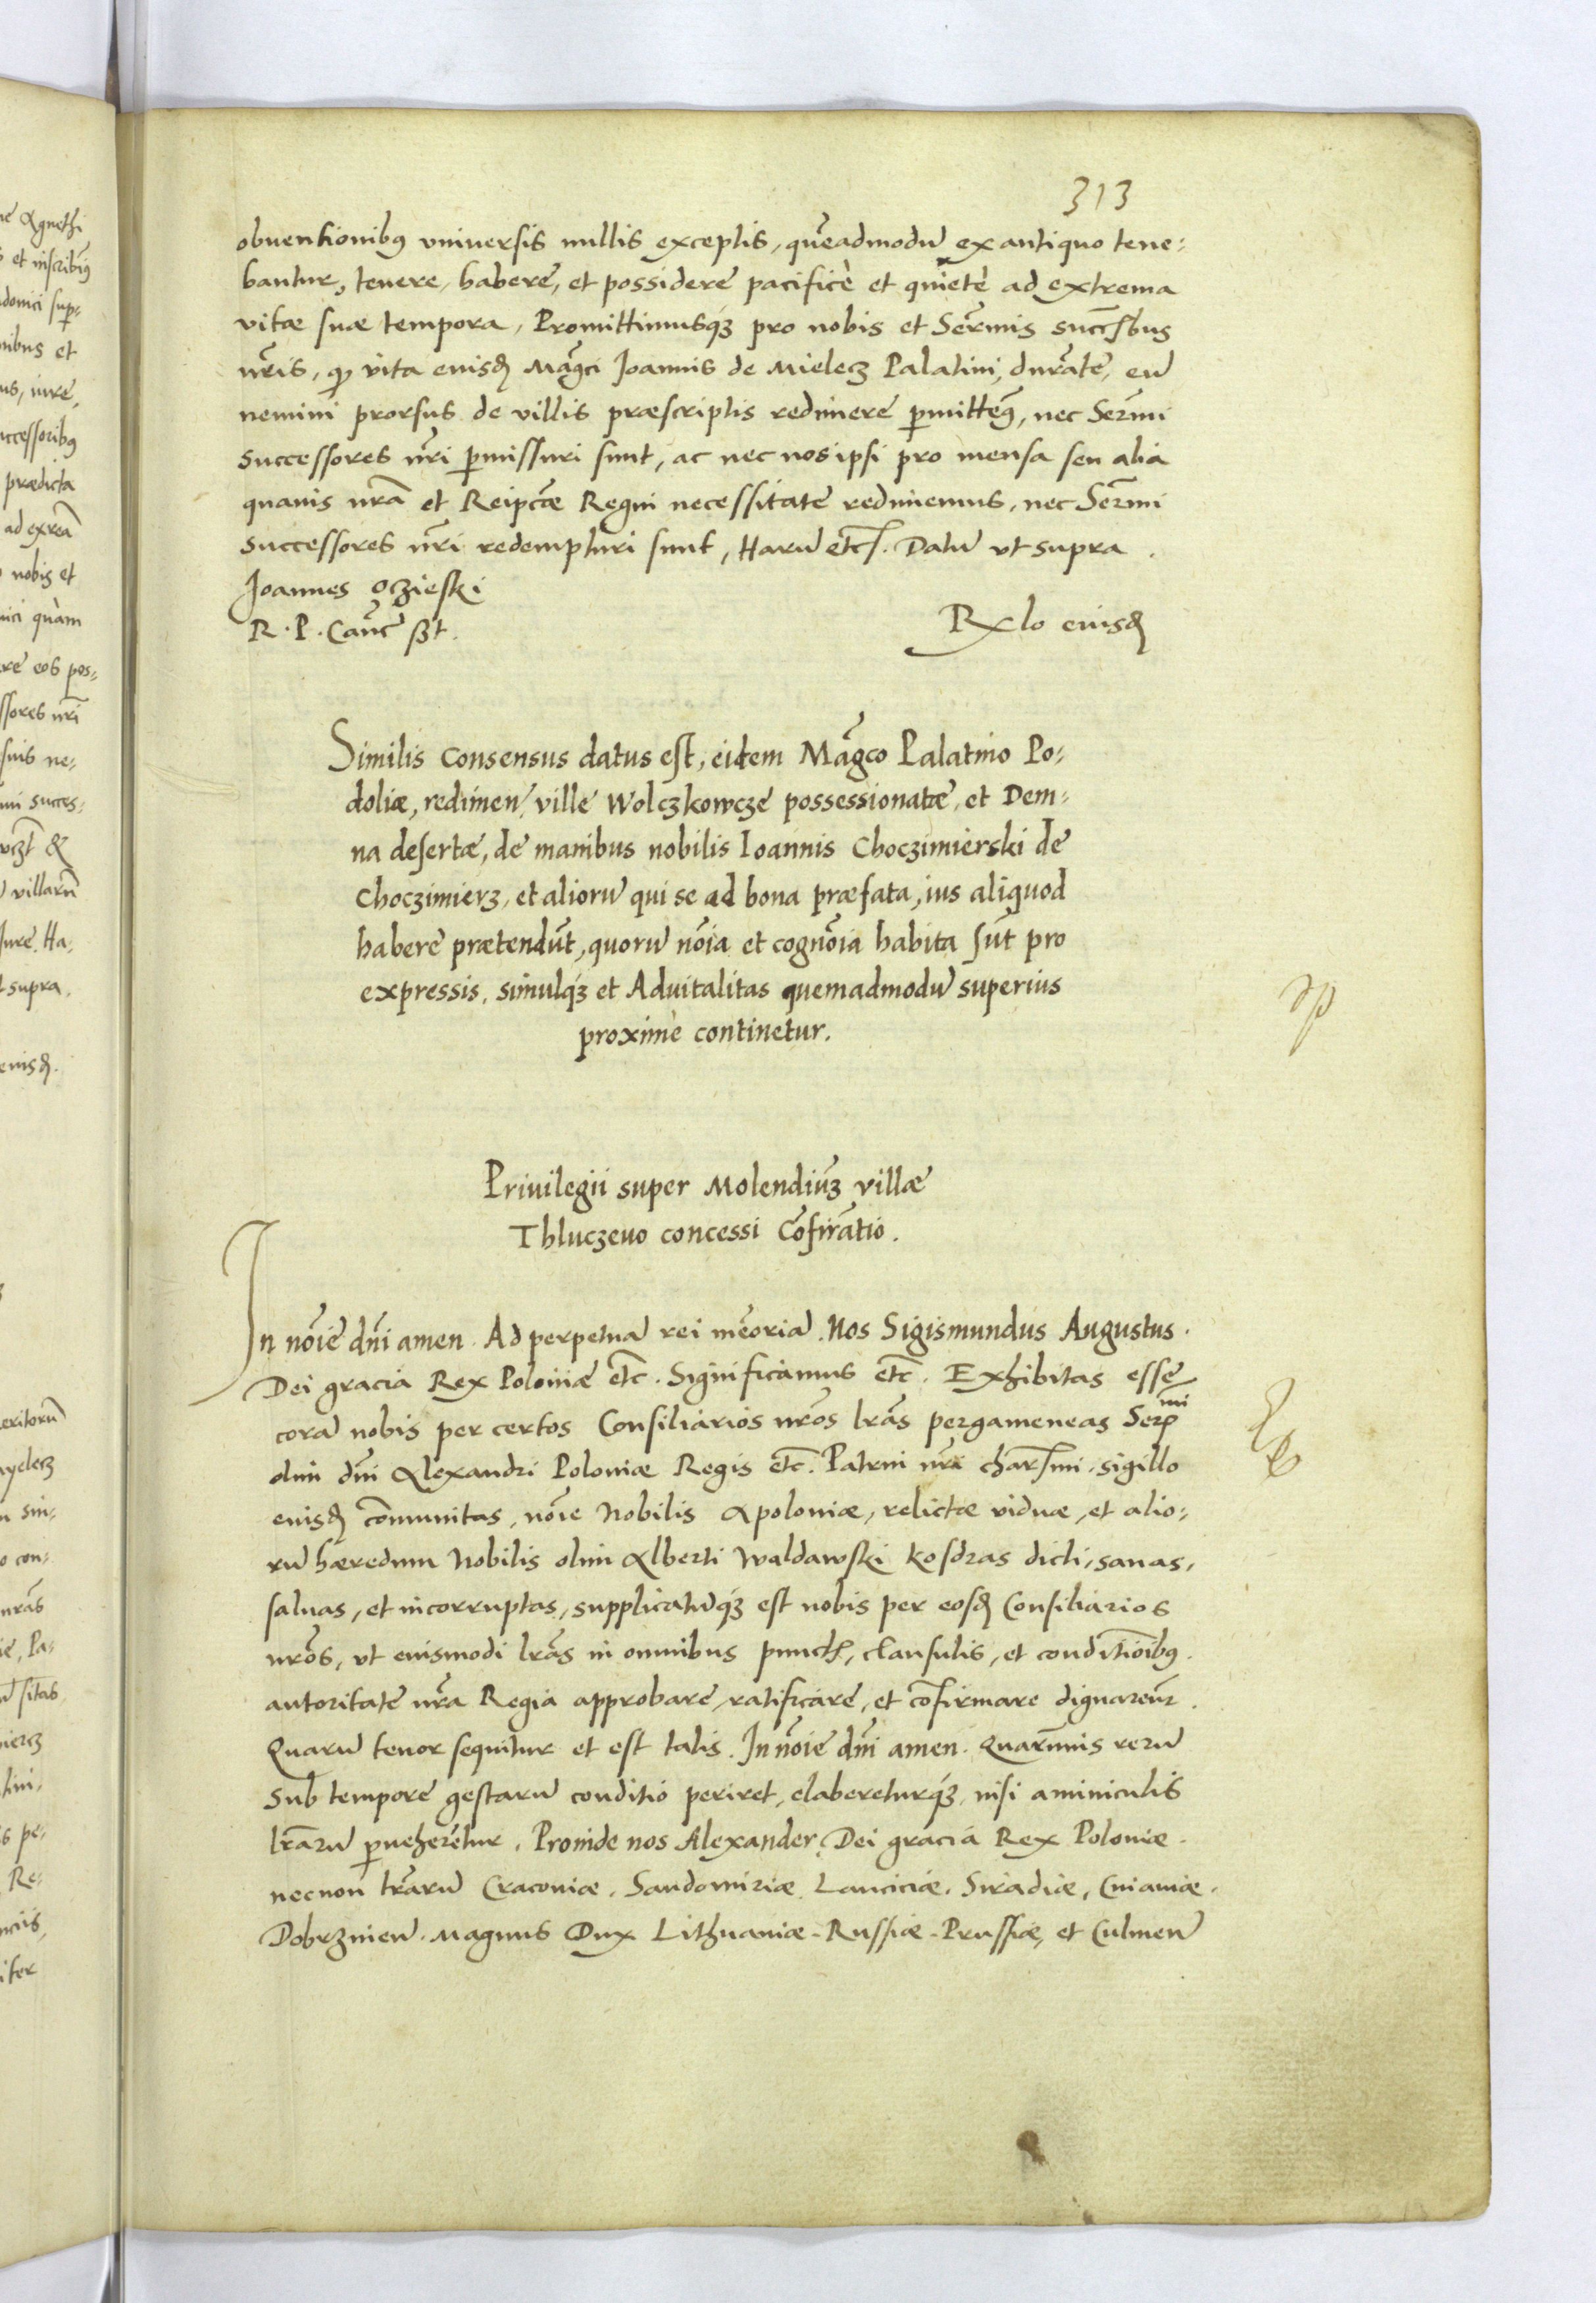 313
obuentionibꝰ vniuersis nullis exceptis, quēadmodū ex antiquo tene:
bantur, tenere, habere, et possidere pacificè et quietè ad extrema
vitæ suæ tempora, Promittimusqꝫ pro nobis et Serm̄is succ̄ssbus
nr̄is, qꝫ vita eiusdꝫ Mag̃ci Joannis de Mielecz Palatini, durāte, eū
nemini prorsus de villis præscriptis redimere ꝑmittemꝰ, nec Serm̄i
successores nr̄i ꝑmissuri sunt, ac nec nos ipsi pro mensa seu alia
quauis nr̄a et Reipcæ Regni necessitate redimemus, nec Serm̄i
successores nr̄i redempturi sunt, Harū etc̄. Datū vt supra.
Joannes Oczieski
R. P. Canc̄ sst.
Rlo eiusdꝫ
Similis consensus datus est, eidem Mag̃co Palatino Po:
doliæ, redimen̄ villę Wolczkowcze possessionatæ, et Dem:
na desertæ, de manibus nobilis Ioannis Choczimierski de
Choczimierz, et aliorū qui se ad bona præfata, ius aliquod
habere prætendūt, quorū nōia et cognōia habita sūt pro
expressis, simulqꝫ et Aduitalitas quemadmodū superius
proxime continetur.
Priuilegii super Molendinū villæ
Thluczeuo concessi Cōfirātio.
In nōie dn̄i amen. Ad perpetuā rei mēoriā. Nos Sigismundus Augustus.
Dei gracia Rex Poloniæ etc̄. Significamus etc̄. Exhibitas esse
corā nobis per certos Consiliarios nr̄os lrās pergameneas Serᵐⁱ
olim dn̄i Alexandri Poloniæ Regis etc̄. Patrui nr̄i charssmi. sigillo
eiusdꝫ cōmunitas, nōie Nobilis Apoloniæ, relictæ viduæ, et alio:
rū hæredum Nobilis olim Alberti Waldawski Kosdras dicti, sanas,
saluas, et incorruptas, supplicatūqꝫ est nobis per eosdꝫ Consiliarios
nr̄os, vt eiusmodi lrās in omnibus punctꝭ, clausulis, et conditiōibꝰ.
autoritate nr̄a Regia approbare, ratificare, et cōfirmare dignaremūr.
Quarū tenor sequitur et est talis. In nōie dn̄i amen. Quarūuis rerū
sub tempore gestarū conditio periret, elabereturqꝫ, nisi aminiculis
lrārū ꝑueherētur. Proinde nos Alexander Dei gracia Rex Poloniæ.
necnon trārū Cracouiæ, Sandomiriæ, Lanciciæ, Siradiæ, Cuiauiæ.
Dobrzinień. Magnus Dux Lithuaniæ. Russiæ. Prussiæ, et Culmeń